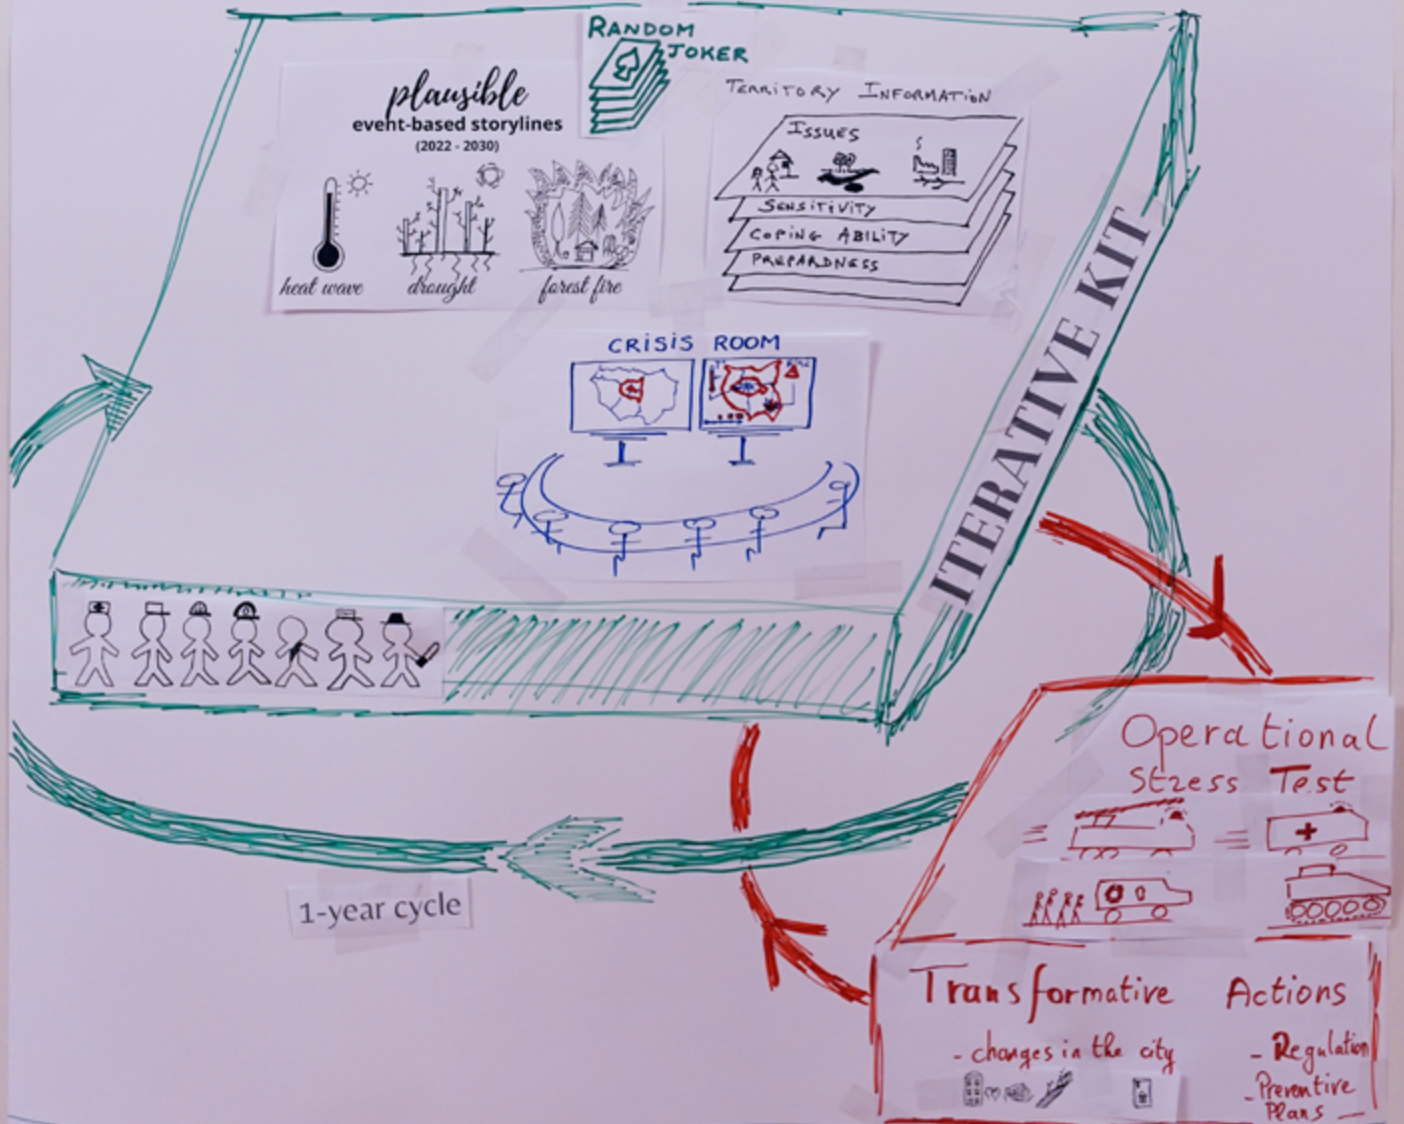 RANDOM
JOKER
plausible
event-based storylines
(2022 - 2030)
heat wave
drought
forest fire
TERRITORY INFORMATION
ISSUES
SENSITIVITY
COPING ABILITY
PREPARDNESS
CRISIS ROOM
ITERATIVE KIT
1-year cycle
Operational
Stress Test
Transformative Actions
- changes in the city
- Regulation
- Preventive
Plans